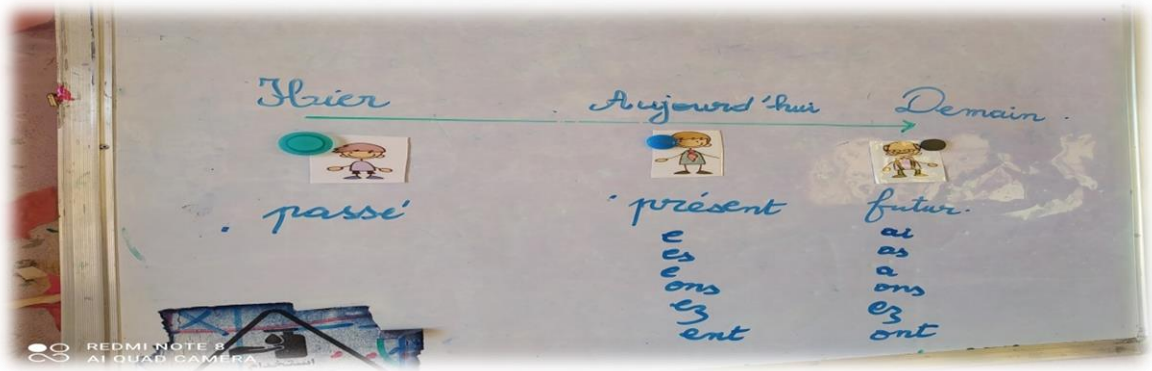 Hier Aujourd'hui Demain
passé présent futur.
e ai
es as
e a
ons ons
ez ez
ent ont
REDMI NOTE 8
AI QUAD CAMERA